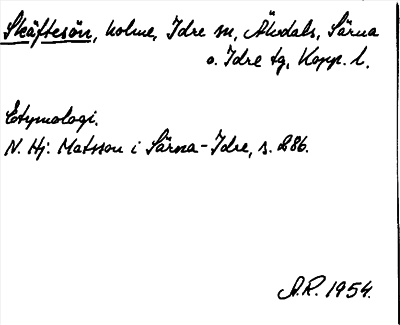 Skäftesön, holme, Idre sn, Älvdals, Särna
o. Idre tg, Kopp. l.
Etymologi.
N. Hj: Matsson i Särna-Idre, s. 286.
A.R. 1954.